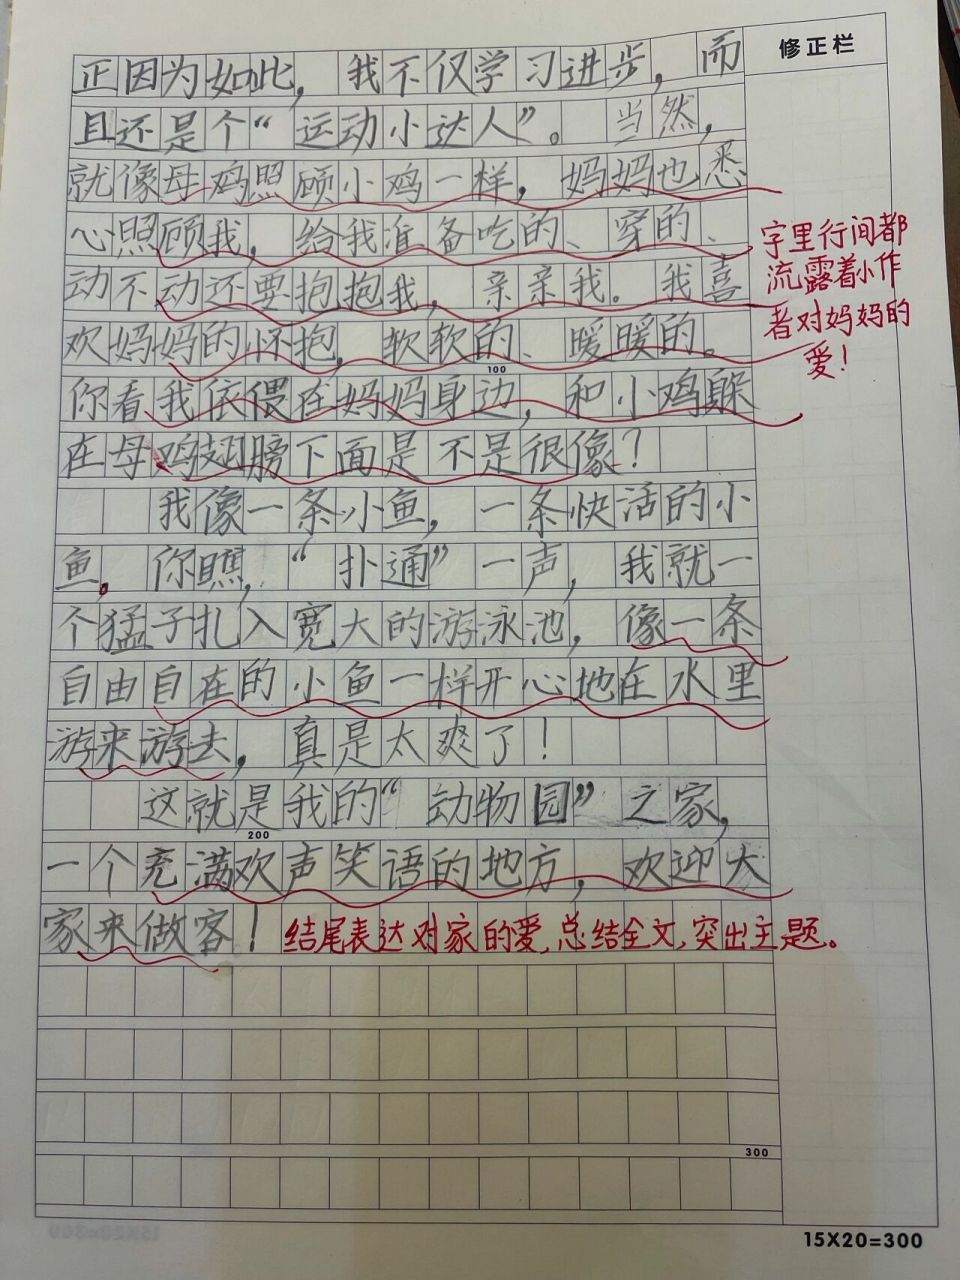 修正栏
正因为如此，我不仅学习进步，而
且还是个“运动小达人”。当然，
就像母鸡照顾小鸡一样，妈妈也悉
心照顾我，给我准备吃的、穿的、
动不动还要抱抱我，亲亲我。我喜
欢妈妈的怀抱，软软的、暖暖的。
100
你看我依偎在妈妈身边，和小鸡躲
在母鸡翅膀下面是不是很像？
字里行间都
流露着小作
者对妈妈的
爱！
我像一条小鱼，一条快活的小
鱼。你瞧，“扑通”一声，我就一
个猛子扎入宽大的游泳池，像一条
自由自在的小鱼一样开心地在水里
游来游去，真是太爽了！
这就是我的“动物园”之家，
200
一个充满欢声笑语的地方，欢迎大
家来做客！
结尾表达对家的爱，总结全文，突出主题。
300
15X20=300